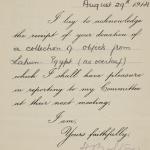 August 29th 1914
I beg to acknowledge
the receipt of your donation of
a collection of objects from
Egypt (as overleaf)
which I shall have pleasure
in reporting to my Committee
at their next meeting;
I am,
Yours faithfully,